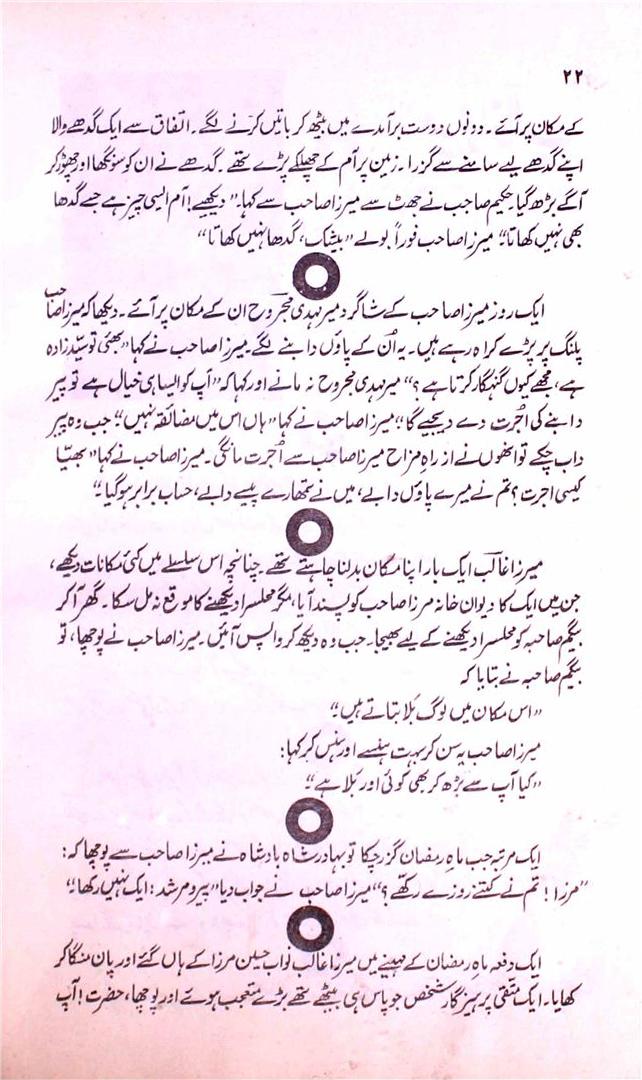 ۲۲
کے مکان پر آئے۔ دونوں دوست برآمدے میں بیٹھ کر باتیں کرنے لگے۔ اتفاق سے ایک گدھے والا
اپنے گدھے لیے سامنے سے گزرا۔ زمین پر آم کے چھلکے پڑے تھے۔ گدھے نے ان کو سونگھا اور چھوڑ کر
آگے بڑھ گیا۔ حکیم صاحب نے جھٹ سے میرزا صاحب سے کہا۔ "دیکھیے! آم ایسی چیز ہے جسے گدھا
بھی نہیں کھاتا"۔ میرزا صاحب فوراً بولے "بیشک، گدھا نہیں کھاتا"
ایک روز میرزا صاحب کے شاگرد میر مہدی مجروح ان کے مکان پر آئے۔ دیکھا کہ میرزا صاحب
پلنگ پر پڑے کراہ رہے ہیں۔ یہ اُن کے پاؤں دابنے لگے۔ میرزا صاحب نے کہا "بھئی تو سیّد زادہ
ہے، مجھے کیوں گنہگار کرتا ہے؟" میر مہدی مجروح نہ مانے اور کہا کہ "آپ کو ایسا ہی خیال ہے تو پیر
دابنے کی اُجرت دے دیجیے گا"۔ میرزا صاحب نے کہا "ہاں اس میں مضائقہ نہیں"۔ جب وہ پیر
داب چکے تو انھوں نے از راہِ مزاح میرزا صاحب سے اُجرت مانگی۔ میرزا صاحب نے کہا "بھیّا
کیسی اجرت؟ تم نے میرے پاؤں دابے، میں نے تمھارے پیسے دابے، حساب برابر ہو گیا۔"
میرزا غالب ایک بار اپنا مکان بدلنا چاہتے تھے۔ چنانچہ اس سلسلے میں کئی مکانات دیکھے،
جن میں ایک کا دیوان خانہ مرزا صاحب کو پسند آیا، مگر محلسرا دیکھنے کا موقع نہ مل سکا۔ گھر آ کر
بیگم صاحبہ کو محلسرا دیکھنے کے لیے بھیجا۔ جب وہ دیکھ کر واپس آئیں۔ میرزا صاحب نے پوچھا، تو
بیگم صاحبہ نے بتایا کہ
"اس مکان میں لوگ بَلا بتاتے ہیں۔"
میرزا صاحب یہ سن کر بہت ہنسے اور ہنس کر کہا:
"کیا آپ سے بڑھ کر بھی کوئی اور بَلا ہے"۔
ایک مرتبہ جب ماہِ رمضان گزر چکا تو بہادر شاہ بادشاہ نے میرزا صاحب سے پوچھا کہ:
"مرزا! تم نے کتنے روزے رکھے؟" میرزا صاحب نے جواب دیا "پیر و مرشد: ایک نہیں رکھا۔"
ایک دفعہ ماہِ رمضان کے مہینے میں میرزا غالب نواب حسین مرزا کے ہاں گئے اور پان منگا کر
کھایا۔ ایک متّقی پرہیزگار شخص جو پاس ہی بیٹھے تھے بڑے متعجب ہوئے اور پوچھا، حضرت! آپ